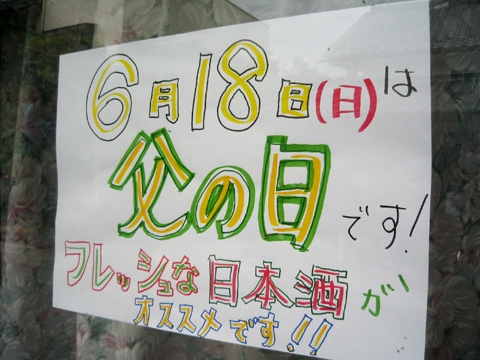 6月18日(日)は
父の日です!
フレッシュな日本酒が
オススメです!!